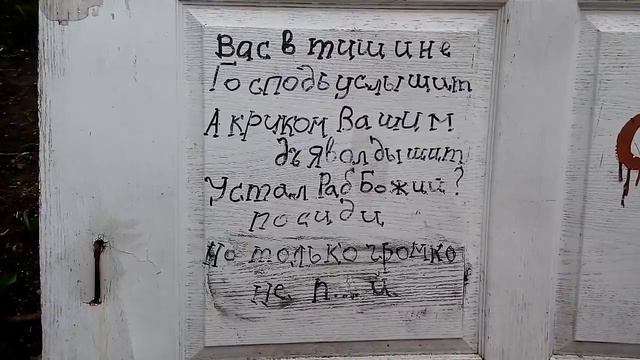 Вас в тишине
Господь услышит
А криком Вашим
дъявол дышит
Устал Раб Божий?
посиди
Но только громко
не п....и